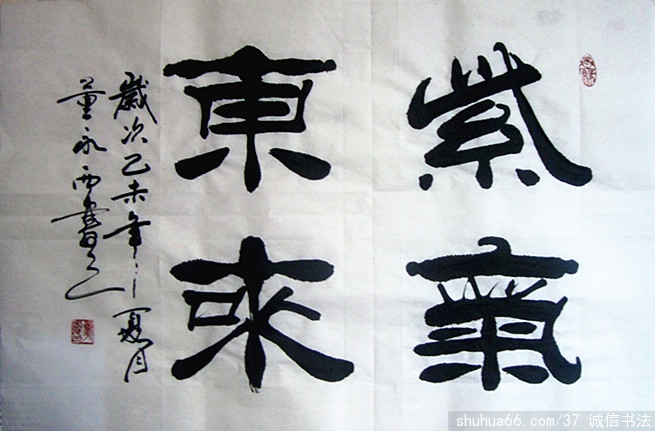 紫氣
東來
歲次乙未年夏月
董永西書之
shuhua66.com/37 诚信书法